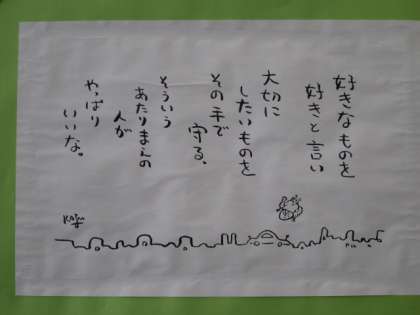 好きなものを
好きと言い
大切に
したいものを
その手で
守る。
そういう
あたりまえの
人が
やっぱり
いいな。